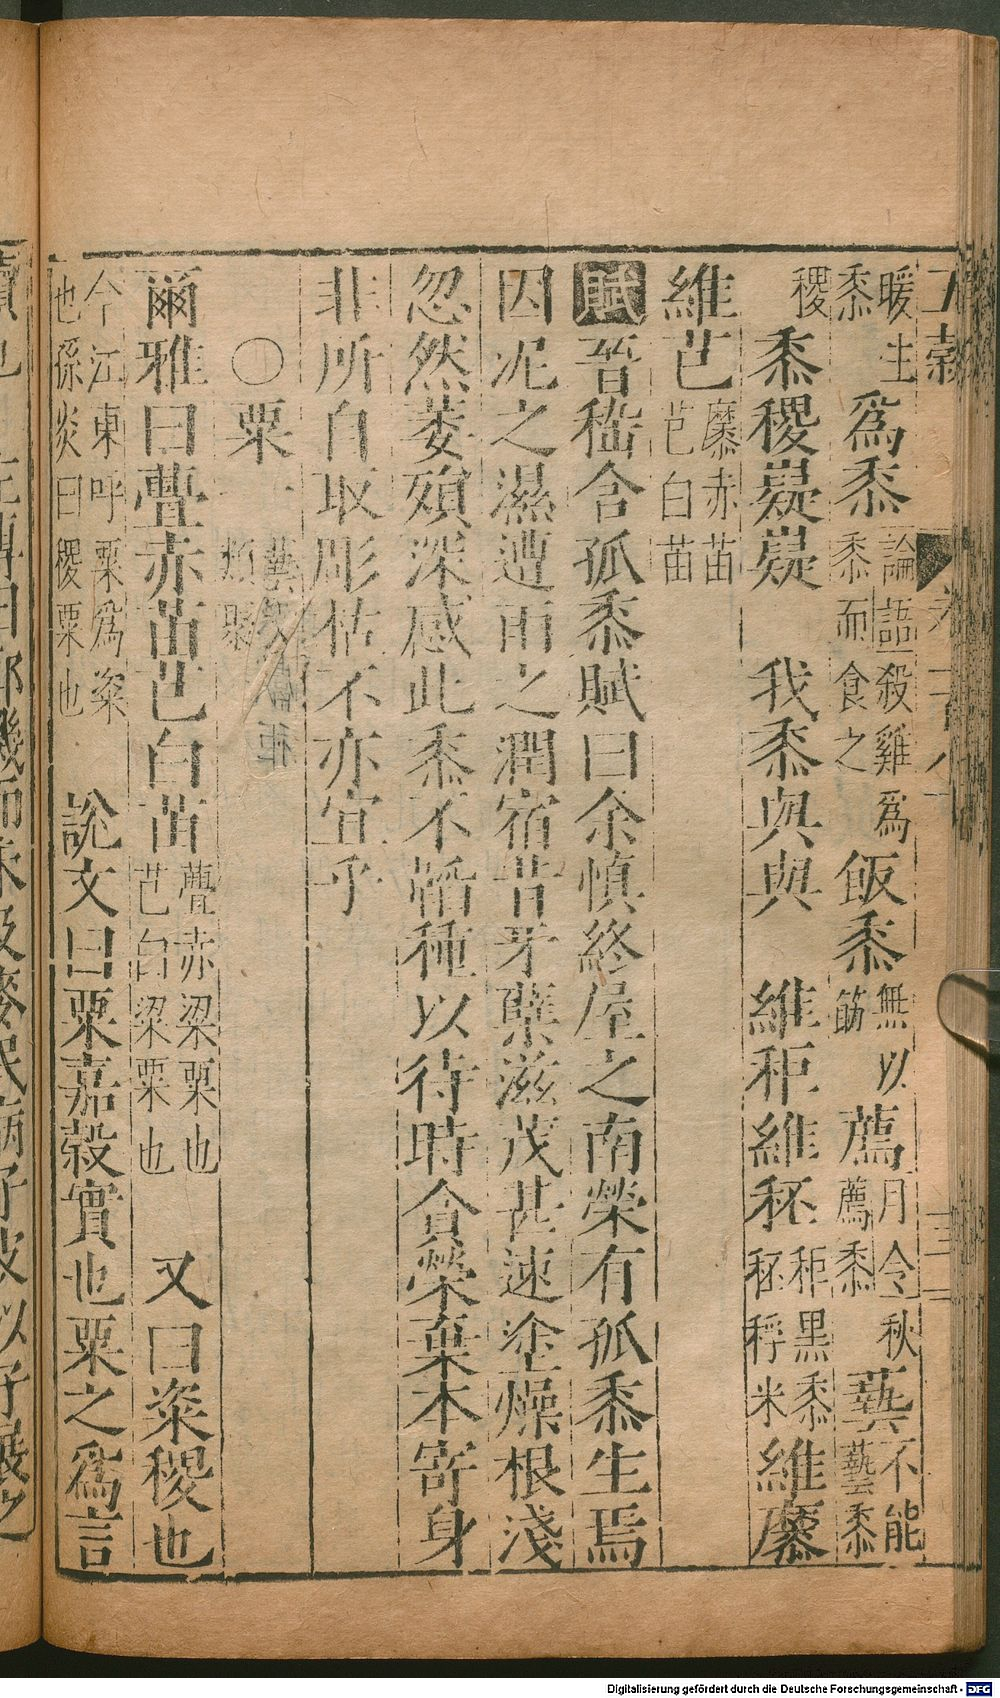 暖生黍稷爲黍論語殺雞爲黍而食之飯黍無以飾薦月令秋薦黍藝不能藝黍
黍稷嶷嶷 我黍與與 維秬維秠秬黑黍秠稃米維穈
維芑穈赤苗芑白苗
賦晉嵇含孤黍賦曰余慎終屋之南榮有孤黍生焉
因泥之濕遭雨之潤宿昔牙蘖滋茂甚速塗燥根淺
忽然萎殞深感此黍不韜種以待時貪榮棄本寄身
非所自取彫枯不亦宜乎
〇粟一
爾雅曰虋赤苗芑白苗虋赤梁粟也芑白梁粟也 又曰粢稷也
今江東呼粟爲粢也孫炎曰稷粟也 說文曰粟嘉穀實也粟之爲言
Digitalisierung gefördert durch die Deutsche Forschungsgemeinschaft - DFG